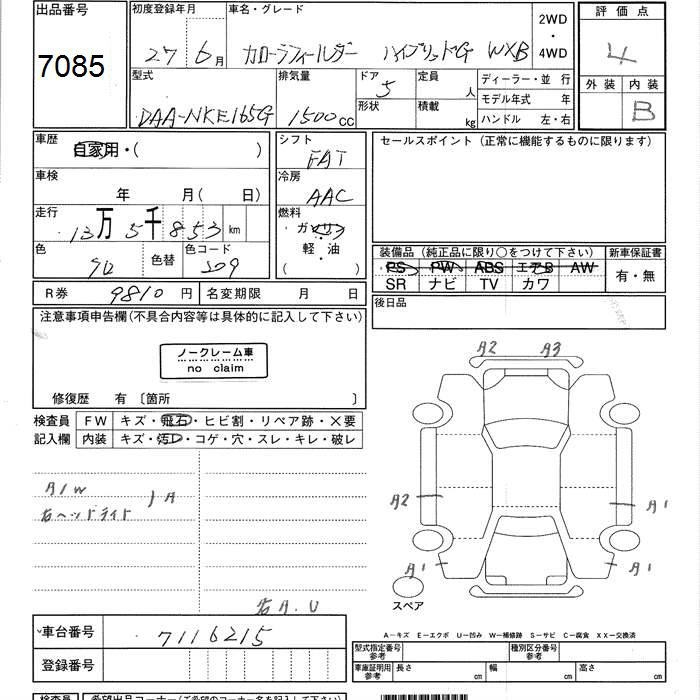 出品番号 初度登録年月 車名・グレード 2WD 評価点
7085 27 6月 カローラフィールダー ハイブリッドG WXB ・ 4WD 4
型式 排気量 ドア 5 定員 人 ディーラー・並 行 外装 内装
DAA-NKE165G 1500cc 形状 積載 kg モデル年式 年 B
ハンドル 左・右
車歴 シフト セールスポイント (正常に機能するものに限ります)
自家用・( ) FAT
車検 冷房
年 月(日) AAC
走行 燃料
13万5千853km ガソリン 装備品 (純正品に限り○をつけて下さい) 新車保証書
色 色替 色コード 軽・油 PS PW ABS エアB AW 有・無
209 ( ) SR ナビ TV カワ
R券 9810円 名変期限 月 日 後日品
注意事項申告欄(不具合内容等は具体的に記入して下さい)
ノークレーム車
no claim
A2 A3
修復歴 有 〔箇所 〕
検査員 FW キズ・飛石・ヒビ割・リペア跡・X要
記入欄 内装 キズ・汚レ・コゲ・穴・スレ・キレ・破レ
A/W
右ヘッドライト }A
A2 A1
A1 A1
スペア
右A.U
車台番号 7116215
A－キズ E－エクボ U－凹み W－補修跡 S－サビ C－腐食 XX－交換済
登録番号 型式指定番号 参考 種別区分番号 参考
車庫証明用 参考 長さ cm 幅 cm 高さ cm
検査員 希望出品コーナー(ご希望のコーナー名を記入して下さい)